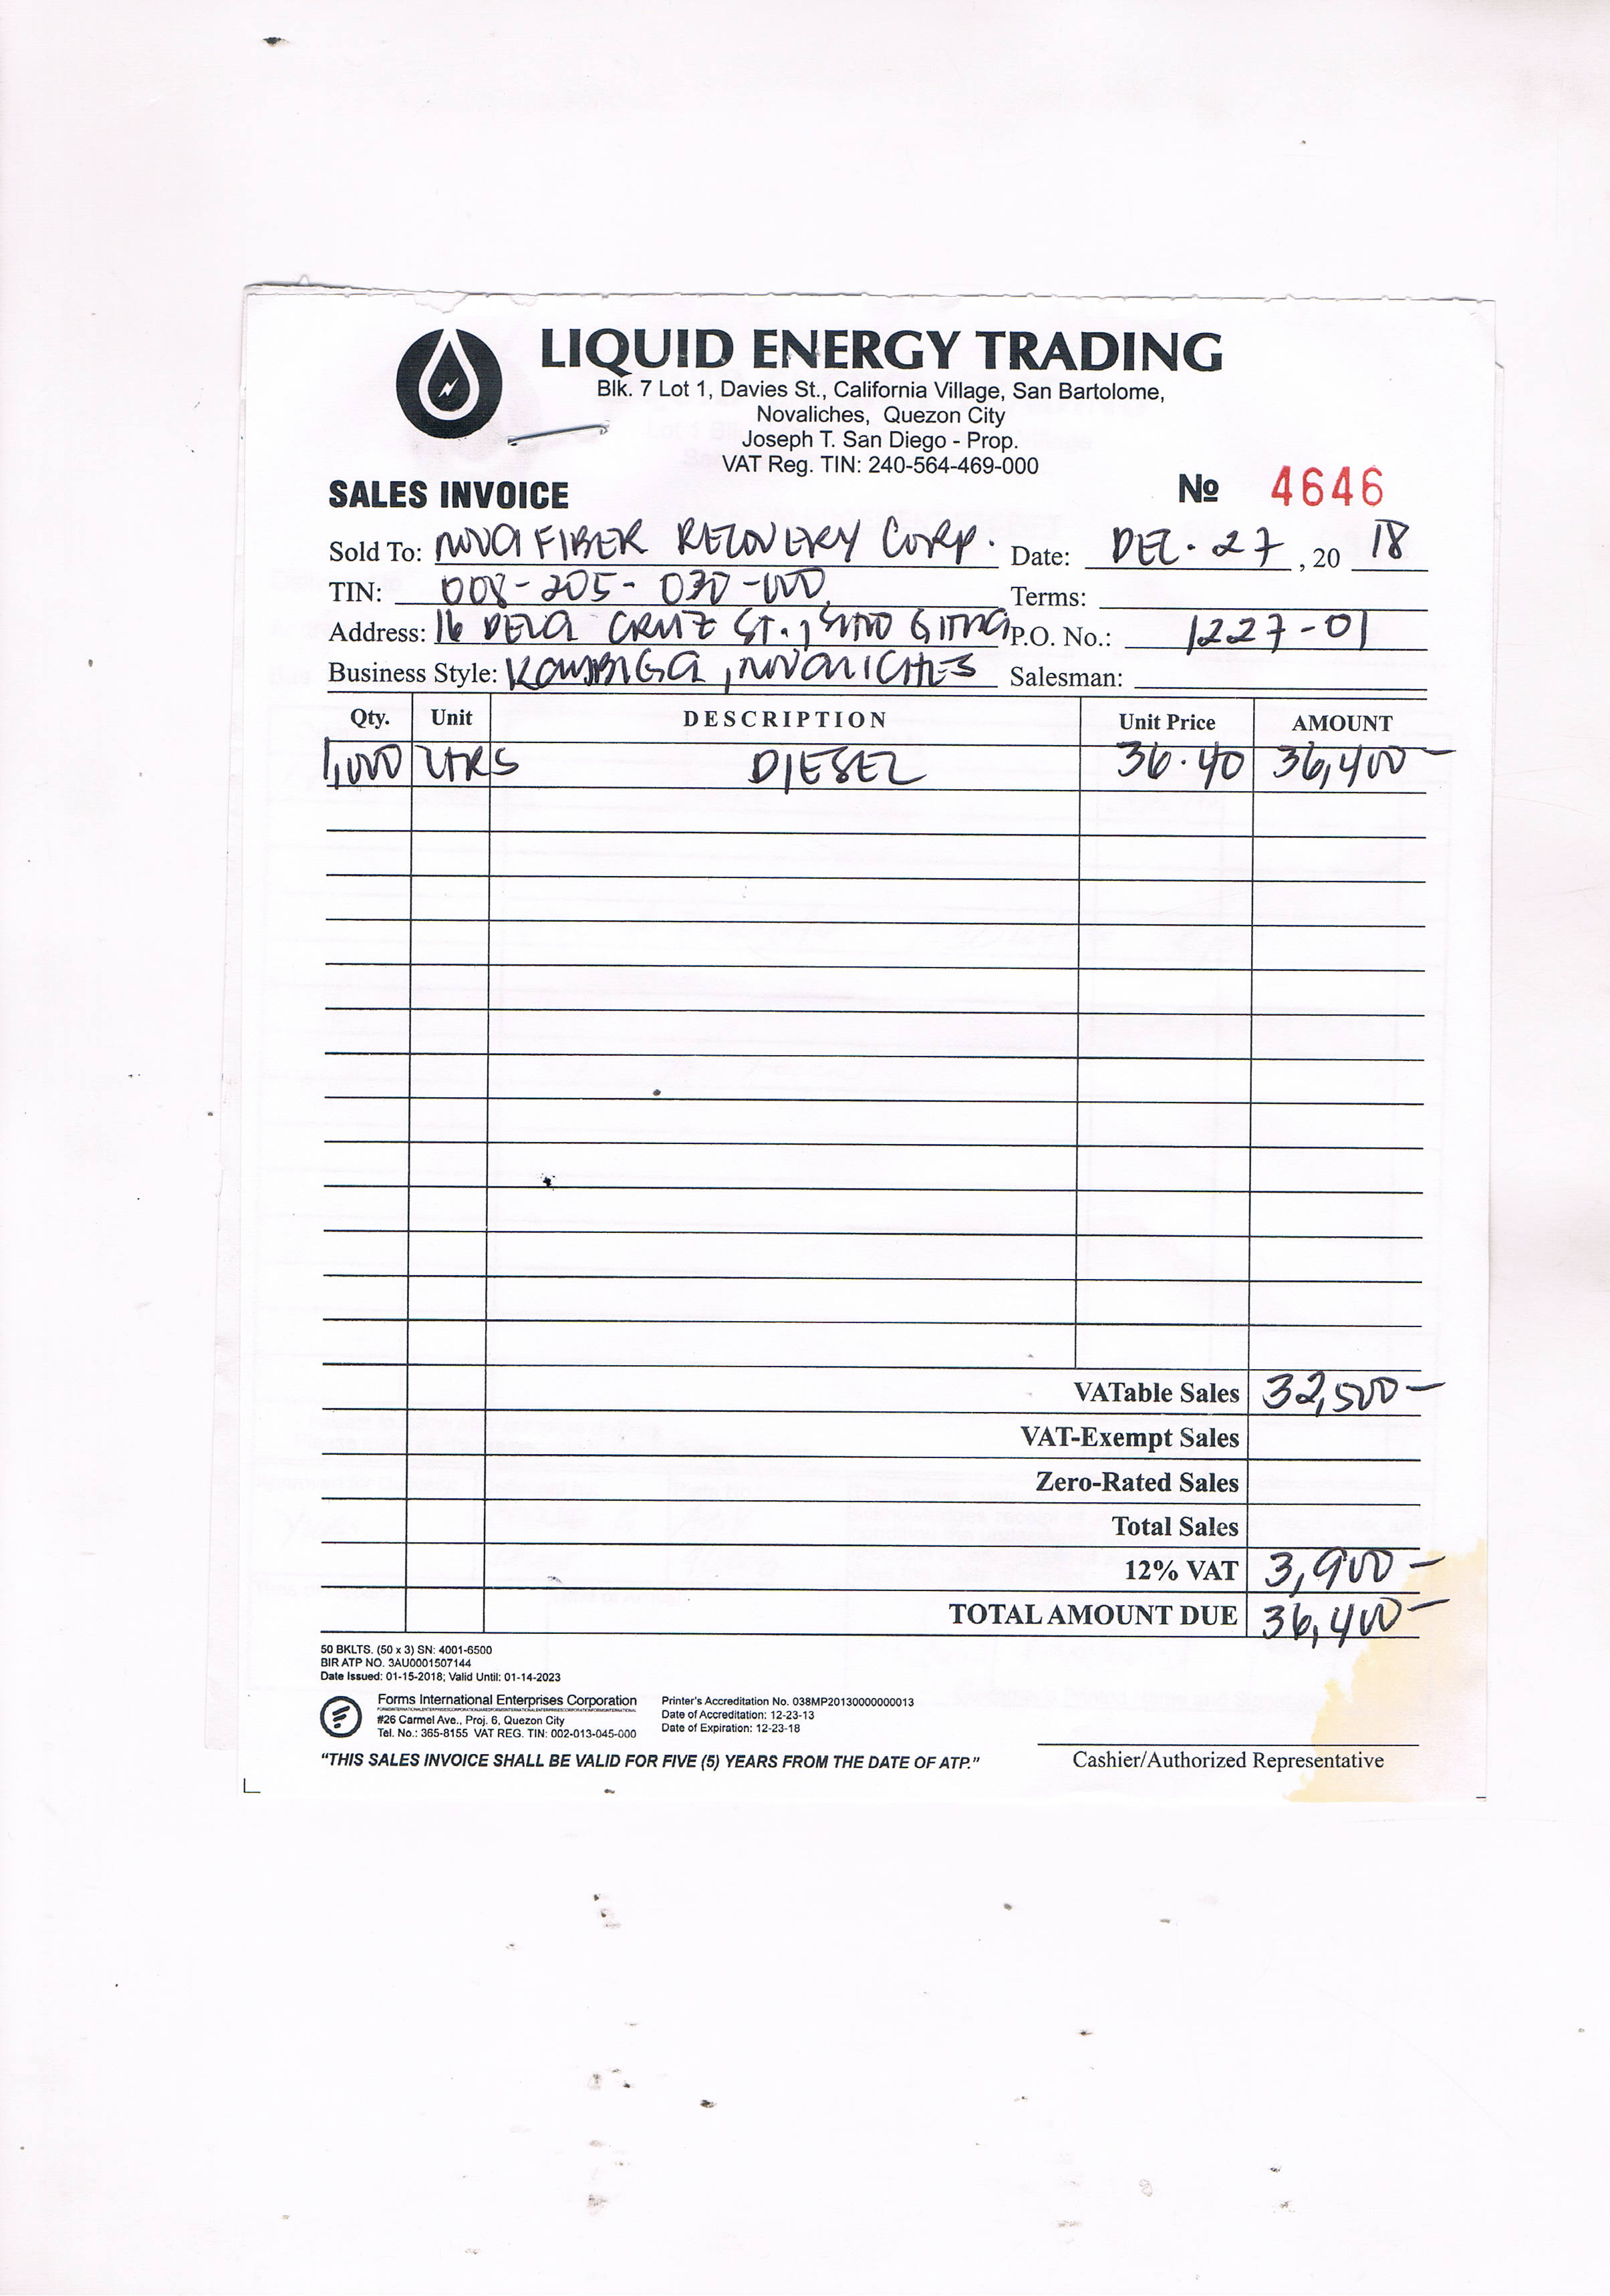 LIQUID ENERGY TRADING
Blk. 7 Lot 1, Davies St., California Village, San Bartolome,
Novaliches, Quezon City
Joseph T. San Diego - Prop.
VAT Reg. TIN: 240-564-469-000
SALES INVOICE № 4646
Sold To: NOVA FIBER RECOVERY CORP. Date: DEC. 27, 20 18
TIN: 008-205-030-000 Terms:
Address: 16 DELA CRUZ ST., SITIO GITNA P.O. No.: 1227-01
Business Style: KAYBIGA, NOVALICHES Salesman:
Qty. Unit DESCRIPTION Unit Price AMOUNT
1,000 LTRS DIESEL 36.40 36,400-
VATable Sales 32,500-
VAT-Exempt Sales
Zero-Rated Sales
Total Sales
12% VAT 3,900-
TOTAL AMOUNT DUE 36,400-
50 BKLTS. (50 x 3) SN: 4001-6500
BIR ATP NO. 3AU0001507144
Date Issued: 01-15-2018; Valid Until: 01-14-2023
Forms International Enterprises Corporation
#26 Carmel Ave., Proj. 6, Quezon City
Tel. No.: 365-8155 VAT REG. TIN: 002-013-045-000
Printer's Accreditation No. 038MP20130000000013
Date of Accreditation: 12-23-13
Date of Expiration: 12-23-18
"THIS SALES INVOICE SHALL BE VALID FOR FIVE (5) YEARS FROM THE DATE OF ATP."
Cashier/Authorized Representative